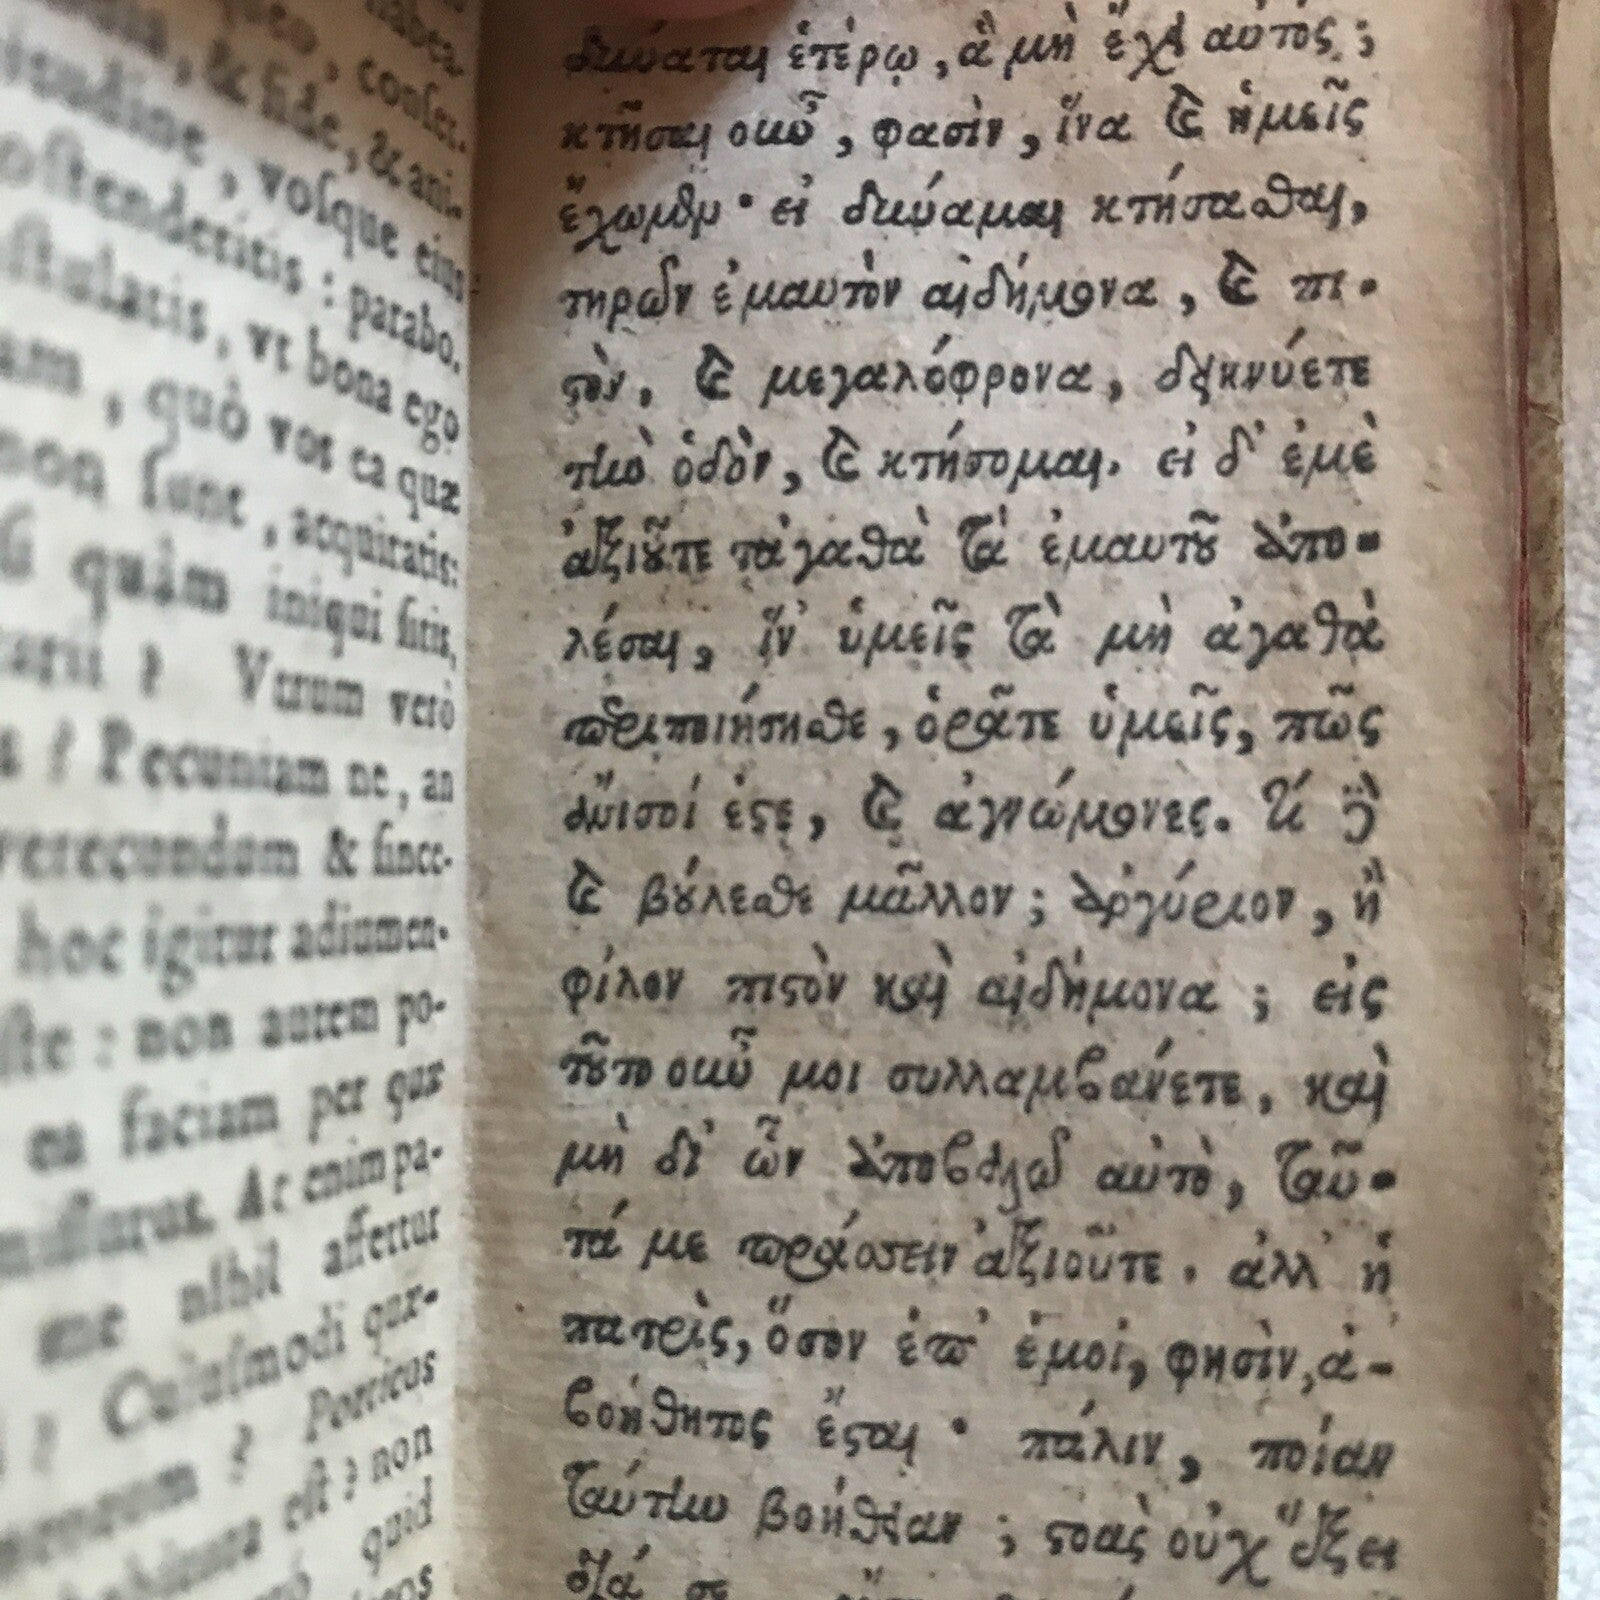 habea
, conser.
, & fide, & ani-
, vosque eius
ostenderitis : parabo.
, vt bona ego
am, quò vos ea quæ
non sunt, acquiratis:
quàm iniqui sitis,
? Vtrum verò
? Pecuniam ne, an
verecundum & since-
hoc igitur adiumen-
: non autem po-
ea faciam per quæ
. At enim pa-
me nihil affertur
? Cuiusmodi quæ-
? Porticus
est ? non
quid
δύναται ἑτέρῳ, ἃ μὴ ἔχει αὐτός;
κτῆσαι οὖν, φασὶν, ἵνα καὶ ἡμεῖς
ἔχωμεν· εἰ δύναμαι κτήσασθαι,
τηρῶν ἐμαυτὸν αἰδήμονα, καὶ πι-
στὸν, καὶ μεγαλόφρονα, δεικνύετε
τὴν ὁδὸν, καὶ κτήσομαι. εἰ δ' ἐμὲ
ἀξιοῦτε τἀγαθὰ τὰ ἐμαυτοῦ ἀπο-
λέσαι, ἵν' ὑμεῖς τὰ μὴ ἀγαθὰ
περιποιήσησθε, ὁρᾶτε ὑμεῖς, πῶς
ἄνισοί ἐστε, καὶ ἀγνώμονες. τί δὲ
καὶ βούλεσθε μᾶλλον; ἀργύριον, ἢ
φίλον πιστὸν καὶ αἰδήμονα; εἰς
τοῦτο οὖν μοι συλλαμβάνετε, καὶ
μὴ δι' ὧν ἀποβαλῶ αὐτὸ, ταῦ-
τά με πράσσειν ἀξιοῦτε. ἀλλ' ἡ
πατρὶς, ὅσον ἐπ' ἐμοί, φησὶν, ἀ-
βοήθητος ἔσται· πάλιν, ποίαν
ταύτην βοήθειαν; στοὰς οὐχ ἕξει